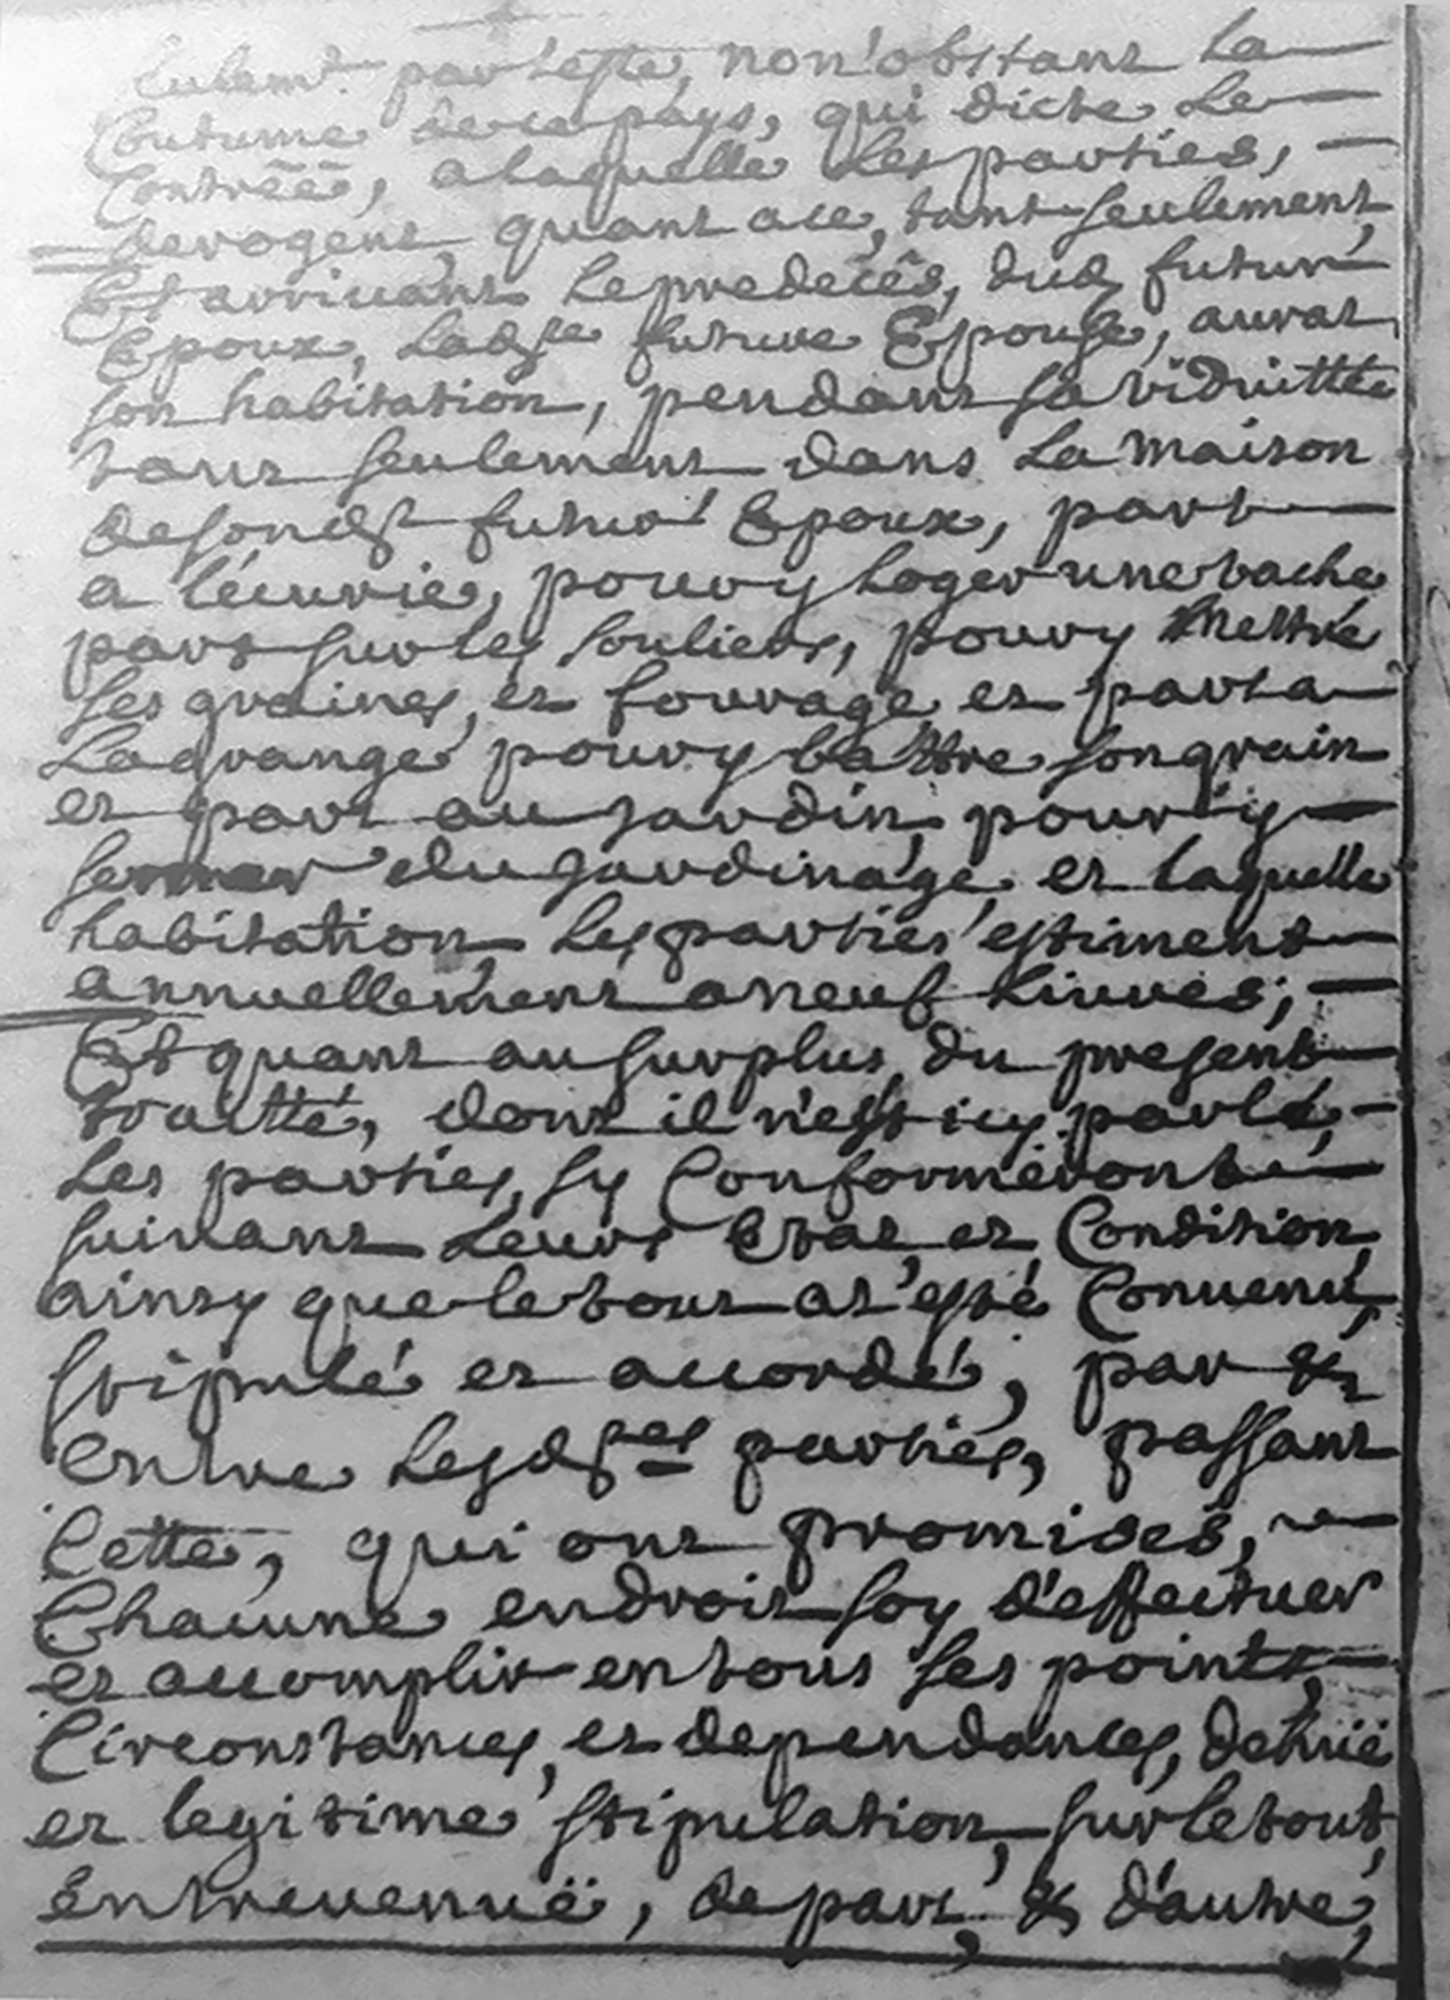 par teste, non obstant La
Coutume de ce pays, qui dicte Le
Contrêê, a laquelle Les parties,
derogent, quant a ce, tant seulement,
Et arrivant Le predecês, dud, futur
Epoux, Ladste future Epouse, aurat
son habitation, pendant sa viduitté
tant seulement dans La maison
de sondst futur Epoux, part
a lécurie, pour y Loger une vache
part sur les souliers, pour y mettre
ses graines, et fourage, et part a
La grange pour y battre son grain
et part au jardin, pour y
semer du jardinage, et laquelle
habitation, Les parties estiment
annuellement a neuf Livres;
Et quant au surplus, du present
traitté, dont il n'est icy parlé,
Les parties, sy Conformeront
suivant Leurs Etat, et Condition,
ainsy que le tout at esté Convenu,
stipulé et accordé, par &
entre Lesdstes parties, passant
Cette, qui ont promises,
Chacune endroit soy d'effectuer
et accomplir en tous ses points,
Circonstances, et dependances, dehuë
et legitime stipulation, sur le tout,
entrevenuë, de part, & d'autre,